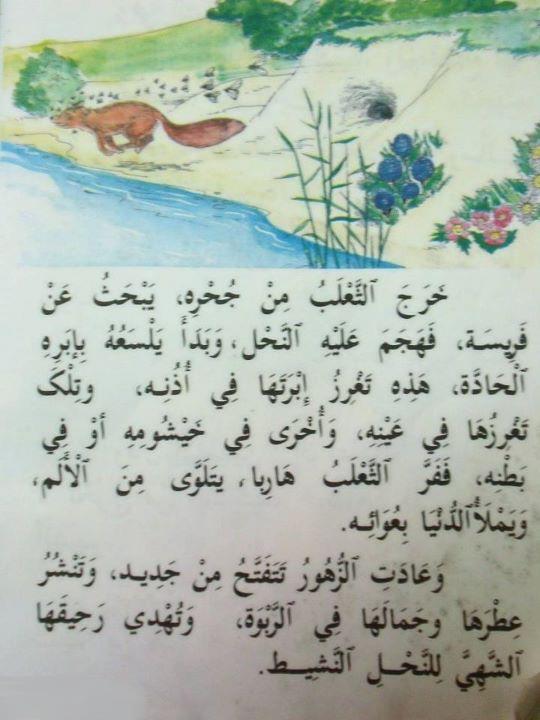 خَرَجَ ٱلثَّعْلَبُ مِنْ جُحْرِهِ، يَبْحَثُ عَنْ
فَرِيسَـة، فَهَجَمَ عَلَيْهِ ٱلنَّحْل، وَبَدَأَ يَلْسَعُهُ بِإبَرِهِ
ٱلْحَادَّة، هَذِهِ تَغْرِزُ إِبْرَتَهَا فِي أُذُنـِه، وتِلْكَ
تَغْرِزُهَا فِي عَيْنِهِ، وَأُخْرَى فِي خَيْشُومِهِ أوْ فِي
بَطْنِه، فَفَرَّ ٱلثَّعْلَبُ هَارِبا، يتَلَوَّى مِنَ ٱلْأَلَم،
وَيَمْلَأُ ٱلدُّنْيَا بِعُوَائِـه.
وَعَادَتِ ٱلزُّهُورُ تَتَفَتَّحُ مِنْ جَدِيـد، وَتَنْشُرُ
عِطْرَهَا وجَمَالَهَا فِي ٱلرَّبْوَة، وَتُهْدِي رَحِيقَهَا
ٱلشَّهِيَّ لِلنَّحْـلِ ٱلنَّشِيـط.